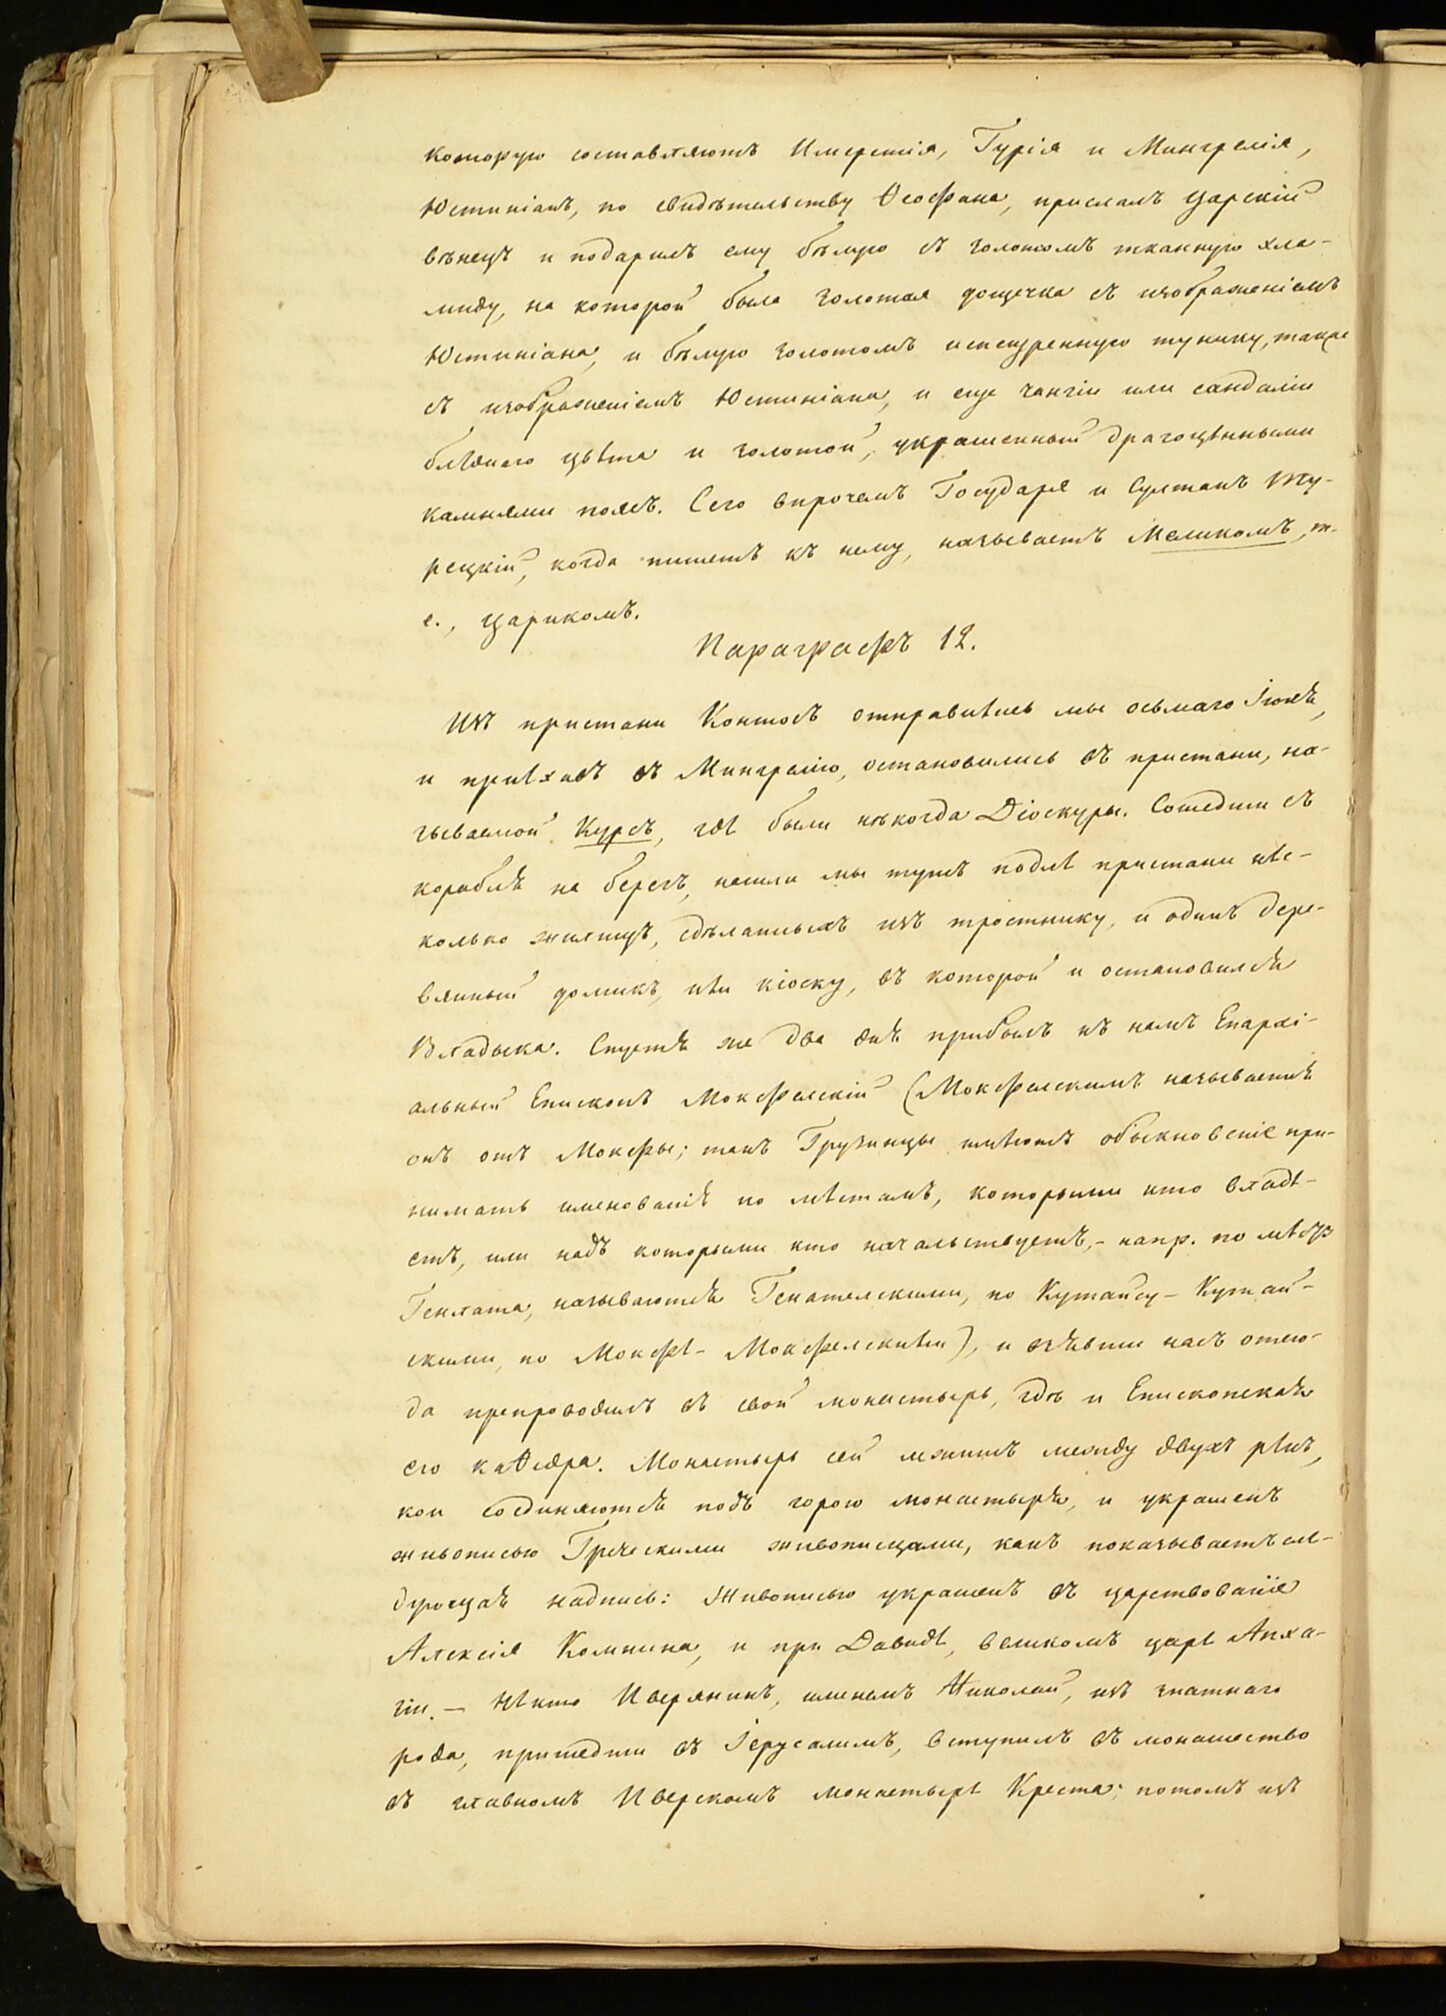 которую составляютъ Имеретія, Гурія и Мингрелія,
Юстиніанъ, по свидѣтельству Ѳеофана, прислалъ царскій
вѣнецъ и подарилъ ему бѣлую съ золотомъ тканную хла-
миду, на которой была золотая дощечка съ изображеніемъ
Юстиніана, и бѣлую золотомъ испещренную тунику, также
съ изображеніемъ Юстиніана, и еще чангіи или сандаліи
блѣднаго цвѣта и золотой, украшенный драгоцѣнными
камнями поясъ. Сего впрочемъ Государя и Султанъ Ту-
рецкій, когда пишетъ къ нему, называетъ Меликомъ, т.
е., царикомъ.
Параграфъ 12.
Изъ пристани Контосъ отправились мы осьмаго Іюня,
и пріѣхавъ въ Мингрелію, остановились въ пристани, на-
зываемой Курсъ, гдѣ были нѣкогда Діоскуры. Сошедши съ
корабля на берегъ, нашли мы тутъ подлѣ пристани нѣс-
колько жилищъ, сдѣланныхъ изъ тростнику, и одинъ дере-
вянный домикъ, или кіоску, въ которой и остановился
Владыка. Спустя же два дня прибылъ къ намъ Епархі-
альный Епископъ Мокфелскій (Мокфелскимъ называется
онъ отъ Мокфы; такъ Грузинцы имѣютъ обыкновеніе при-
нимать именованія по мѣстамъ, которыми кто владѣ-
етъ, или надъ которыми кто начальствуетъ, - напр. по мѣсту
Генлата, называются Генателскими, по Кутайсу - Кутай-
скими, по Мокфѣ - Мокфелскими), и взявши насъ отсю-
да препроводилъ въ свой монастырь, гдѣ и Епископская
его каѳедра. Монастырь сей лежитъ между двухъ рѣкъ,
кои соединяются подъ горою монастыря, и украшенъ
живописью Греческими живописцами, какъ показываетъ слѣ-
дующая надпись: Живописью украшенъ въ царствованіе
Алексія Комнина, и при Давидѣ, великомъ царѣ Апха-
зіи. — Нѣкто Иверянинъ, именемъ Николай, изъ знатнаго
рода, пришедши въ Іерусалимъ, вступилъ въ монашество
въ главномъ Иверскомъ монастырѣ Креста; потомъ изъ